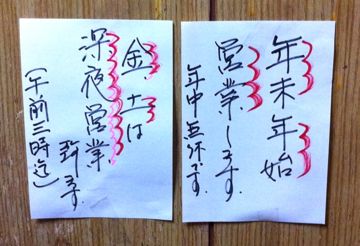 年末年始
営業します。
年中無休です。
金、土は
深夜営業
致ます。
(午前三時迄)